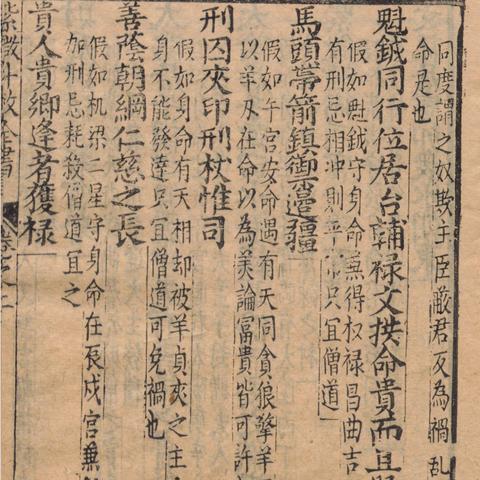 同度謂之奴欺主臣蔽君反為禍乱
命是也
魁鉞同行位居台輔祿文拱命貴而且
假如魁鉞守身命兼得权禄昌曲吉
有刑忌相冲則平常只宜僧道
馬頭帶箭鎮御邊疆
假如午宮安命遇有天同貪狼擎羊
以羊刃在命以為美論富貴皆可許
刑囚夾印刑杖惟司
假如身命有天相却被羊貞夾之主
身不能發達只宜僧道可免禍也
善蔭朝綱仁慈之長
假如机梁二星守身命在辰戌宮兼
加刑忌耗殺僧道宜之
貴人貴鄉逢者獲祿
紫微斗数全書
卷之二